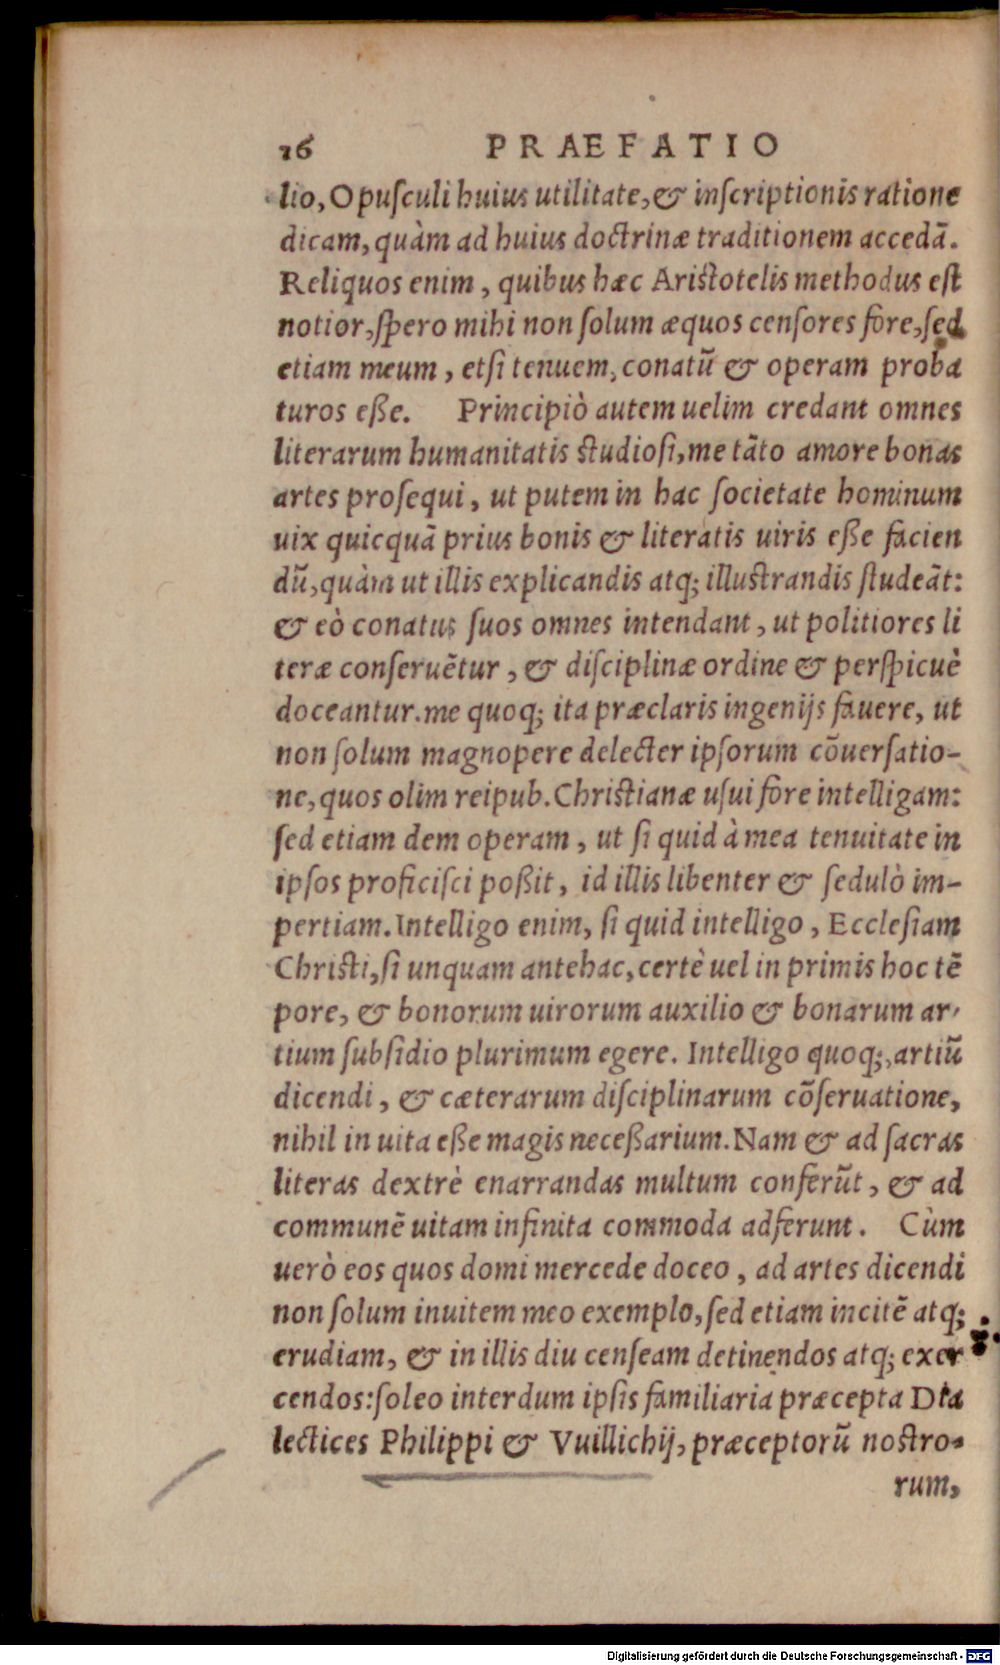 16 PRAEFATIO
lio, Opuſculi huius utilitate, & inſcriptionis ratione
dicam, quàm ad huius doctrinæ traditionem accedā.
Reliquos enim, quibus hæc Ariſtotelis methodus eſt
notior, ſpero mihi non ſolum æquos cenſores fore, ſed
etiam meum, etſi tenuem, conatū & operam proba
turos eße. Principiò autem uelim credant omnes
literarum humanitatis ſtudioſi, me tāto amore bonas
artes proſequi, ut putem in hac ſocietate hominum
uix quicquā prius bonis & literatis uiris eße facien
dū, quàm ut illis explicandis atq; illuſtrandis ſtudeāt:
& eò conatus ſuos omnes intendant, ut politiores li
teræ conſeruētur, & diſciplinæ ordine & perſpicuè
doceantur. me quoq; ita præclaris ingenijs fauere, ut
non ſolum magnopere delecter ipſorum cōuerſatio-
ne, quos olim reipub. Chriſtianæ uſui fore intelligam:
ſed etiam dem operam, ut ſi quid à mea tenuitate in
ipſos proficiſci poßit, id illis libenter & ſedulò im-
pertiam. Intelligo enim, ſi quid intelligo, Eccleſiam
Chriſti, ſi unquam antehac, certè uel in primis hoc tē
pore, & bonorum uirorum auxilio & bonarum ar-
tium ſubſidio plurimum egere. Intelligo quoq;, artiū
dicendi, & cæterarum diſciplinarum cōſeruatione,
nihil in uita eße magis neceßarium. Nam & ad ſacras
literas dextrè enarrandas multum conferūt, & ad
communē uitam infinita commoda adferunt. Cùm
uerò eos quos domi mercede doceo, ad artes dicendi
non ſolum inuitem meo exemplo, ſed etiam incitē atq;
erudiam, & in illis diu cenſeam detinendos atq; exer
cendos: ſoleo interdum ipſis familiaria præcepta Dia
lectices Philippi & Vuillichij, præceptorū noſtro-
rum,
Digitalisierung gefördert durch die Deutsche Forschungsgemeinschaft - DFG